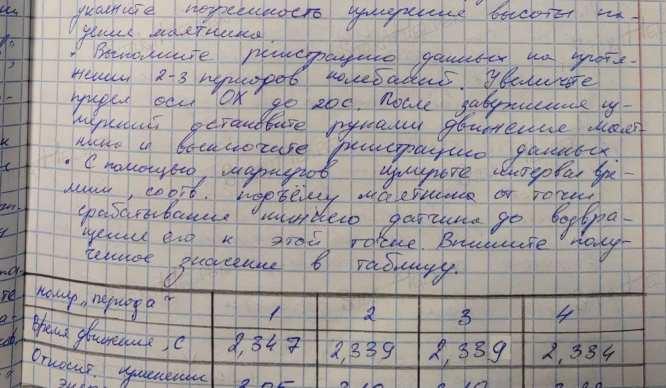 укажите погрешность измерения высоты па-
дения маятника.
• Выполните регистрацию данных на протя-
жении 2-3 периодов колебаний. Увеличьте
предел оси OX до 20с. После завершения из-
мерений остановите руками движение маят-
ника и выключите регистрацию данных.
• С помощью маркеров измерьте интервал вре-
мени, соотв. подъёму маятника от точки
срабатывания нижнего датчика до возвра-
щение его к этой точке. Впишите полу-
ченное значение в таблицу.
номер „периода" 1 2 3 4
Время движения, С 2,347 2,339 2,339 2,334
Относит. изменение